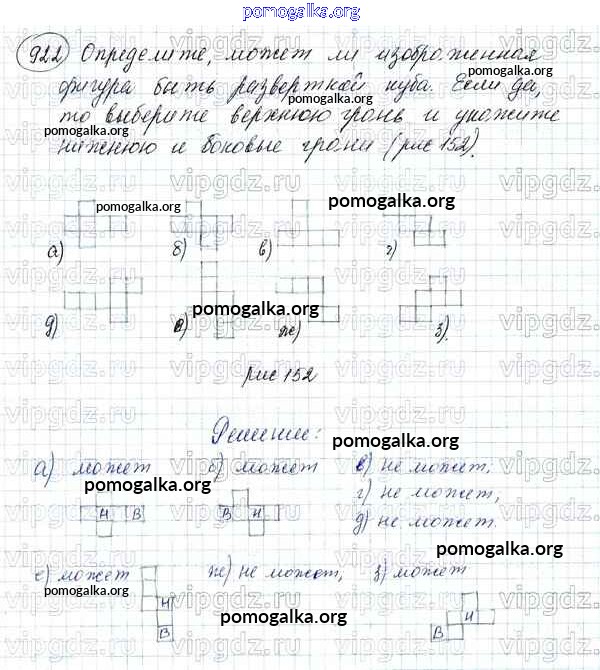 pomogalka.org
922 Определите, может ли изображенная
фигура быть развёрткой куба. Если да,
pomogalka.org
то выберите верхнюю грань и укажите
pomogalka.org
нижнюю и боковые грани (рис 152).
vipgdz.ru
pomogalka.org
а) б) в) г)
pomogalka.org
д) е) ж) з).
рис 152
vipgdz.ru
Решение:
pomogalka.org
а) может б) может в) не может;
г) не может,
д) не может.
pomogalka.org
Н В В Н
pomogalka.org
е) может ж) не может, з) может
pomogalka.org
Н Н
В В
pomogalka.org